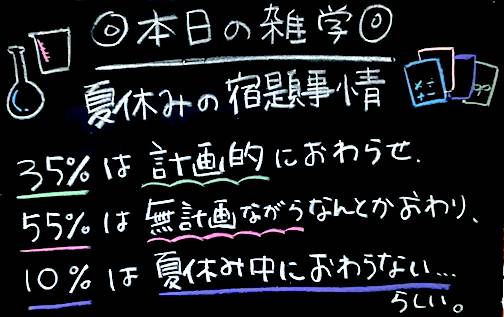 ◎本日の雑学◎
夏休みの宿題事情
35%は計画的におわらせ、
55%は無計画ながらなんとかおわり、
10%は夏休み中におわらない…
らしい。